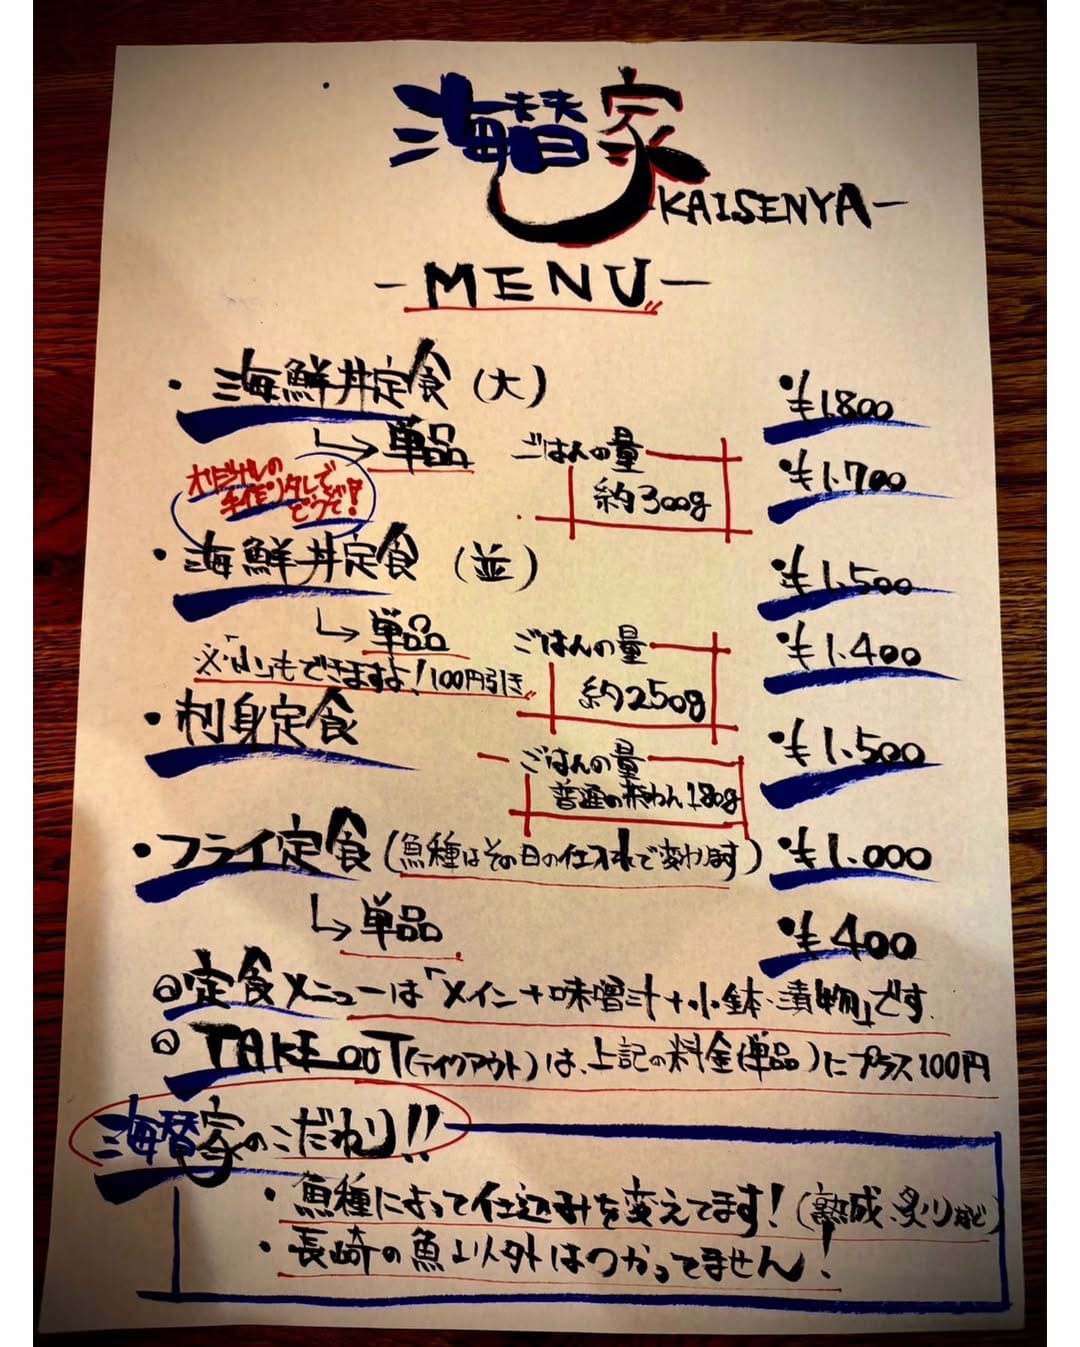 海替家
-KAISENYA-
-MENU-
・海鮮丼定食(大) ¥1.800
↳単品 ごはんの量 約300g ¥1.700
オリジナルの
手作リタレで
どうぞ!
・海鮮丼定食(並) ¥1.500
↳単品 ごはんの量 約250g ¥1.400
※「小」もできますよ!100円引き
・刺身定食 ¥1.500
ごはんの量
普通の茶わん180g
・フライ定食(魚種はその日の仕入れで変わります) ¥1.000
↳単品 ¥400
◎定食メニューは「メイン+味噌汁+小鉢・漬物」です.
◎TAKE OUT(テイクアウト)は、上記の料金(単品)にプラス100円
海替家のこだわり!!
・魚種によって仕込みを変えてます!(熟成、炙りなど)
・長崎の魚以外はつかってません!